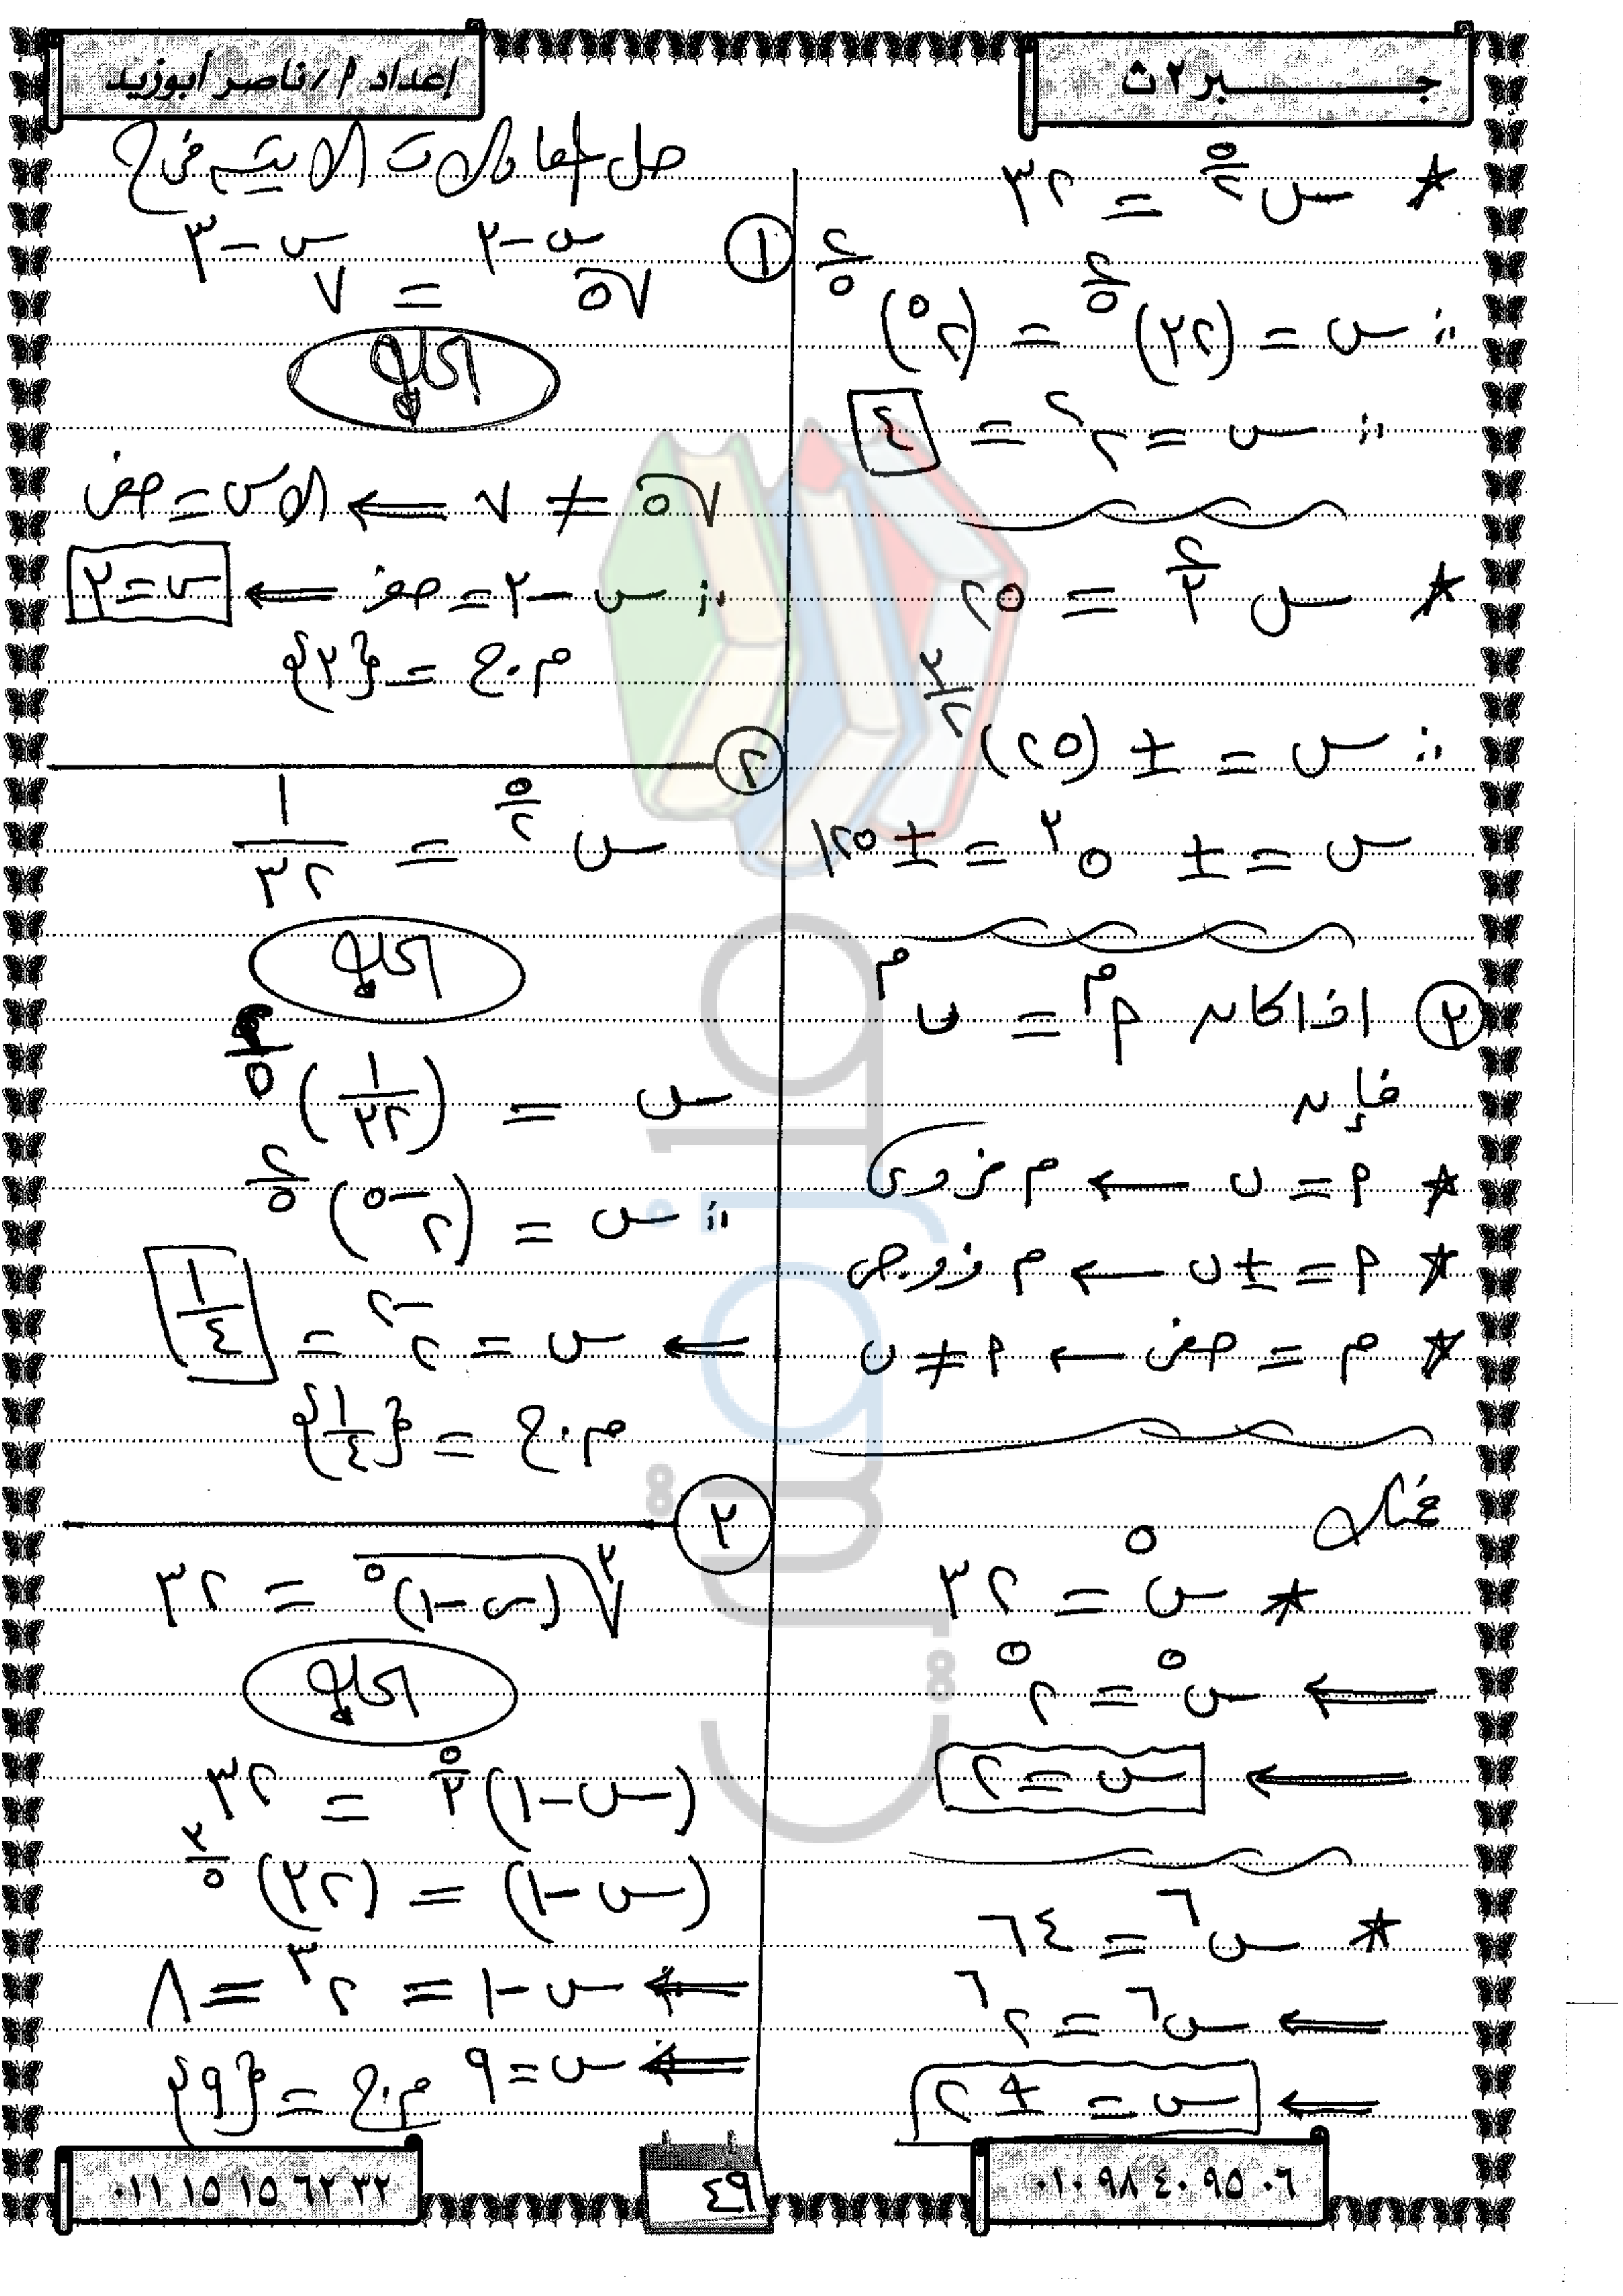 جـــــبر ٢ ث
إعداد أ / ناصر أبوزيد
* س^(٥/٢) = ٣٢
∴ س = (٣٢)^(٢/٥) = (٢^٥)^(٢/٥)
∴ س = ٢^٢ = ٤
* س^(٢/٣) = ٢٥
∴ س = ± (٢٥)^(٣/٢)
س = ± ٥^٣ = ± ١٢٥
٣ اذا كان م^م = ن^م
فإن
* م = ن ← م فردى
* م = ± ن ← م زوجى
* م = صفر ← م ≠ ن
فمثلا
* س^٥ = ٣٢
⇐ س^٥ = ٢^٥
⇐ س = ٢
* س^٦ = ٦٤
⇐ س^٦ = ٢^٦
⇐ س = ± ٢
حل المعادلات الاتيه فى ح
١ ٥√^(س-٣) = ٧^(س-٣)
الحل
٥√ ≠ ٧ ⇐ الاس = صفر
∴ س - ٣ = صفر ⇐ س = ٣
م.ح = {٣}
٢ س^(٥/٢) = ١/٣٢
الحل
س = (١/٣٢)^(٢/٥)
∴ س = (٢^-٥)^(٢/٥)
⇐ س = ٢^-٢ = ١/٤
م.ح = {١/٤}
٣ ٣√(س-١)^٥ = ٣٢
الحل
(س-١)^(٥/٣) = ٣٢
(س-١) = (٣٢)^(٣/٥)
⇐ س-١ = ٢^٣ = ٨
⇐ س = ٩ م.ح = {٩}
٠١٠ ٩٨ ٤٠ ٩٥ ٠٦
٤٩
٠١١ ١٥ ١٥ ٦٢ ٣٢